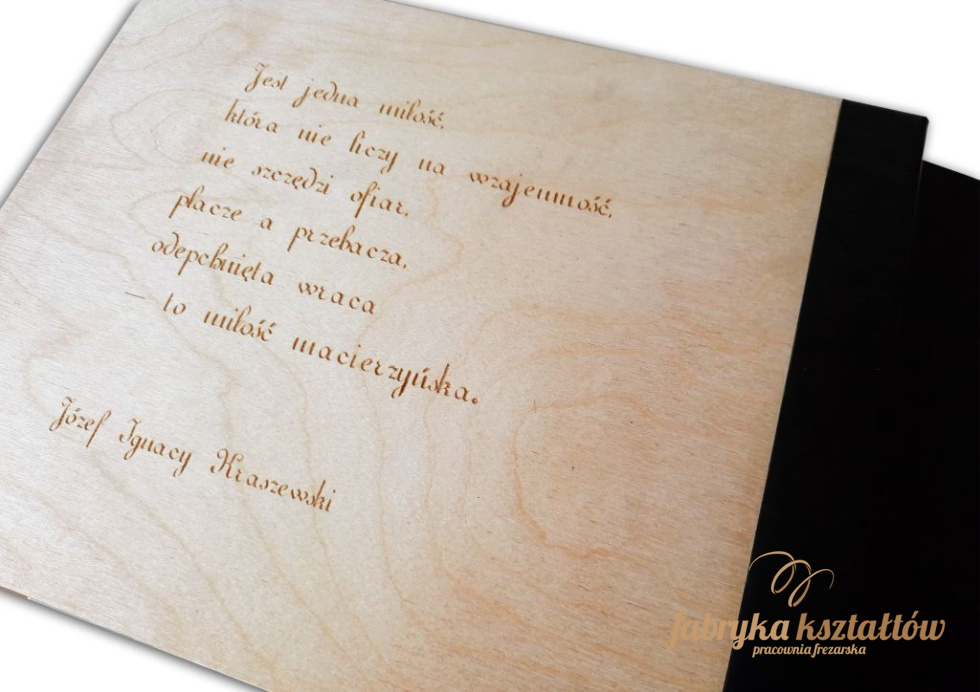 Jest jedna miłość,
która nie liczy na wzajemność,
nie szczędzi ofiar,
płacze a przebacza,
odepchnięta wraca
to miłość macierzyńska.
Józef Ignacy Kraszewski
fabryka kształtów
pracownia frezarska